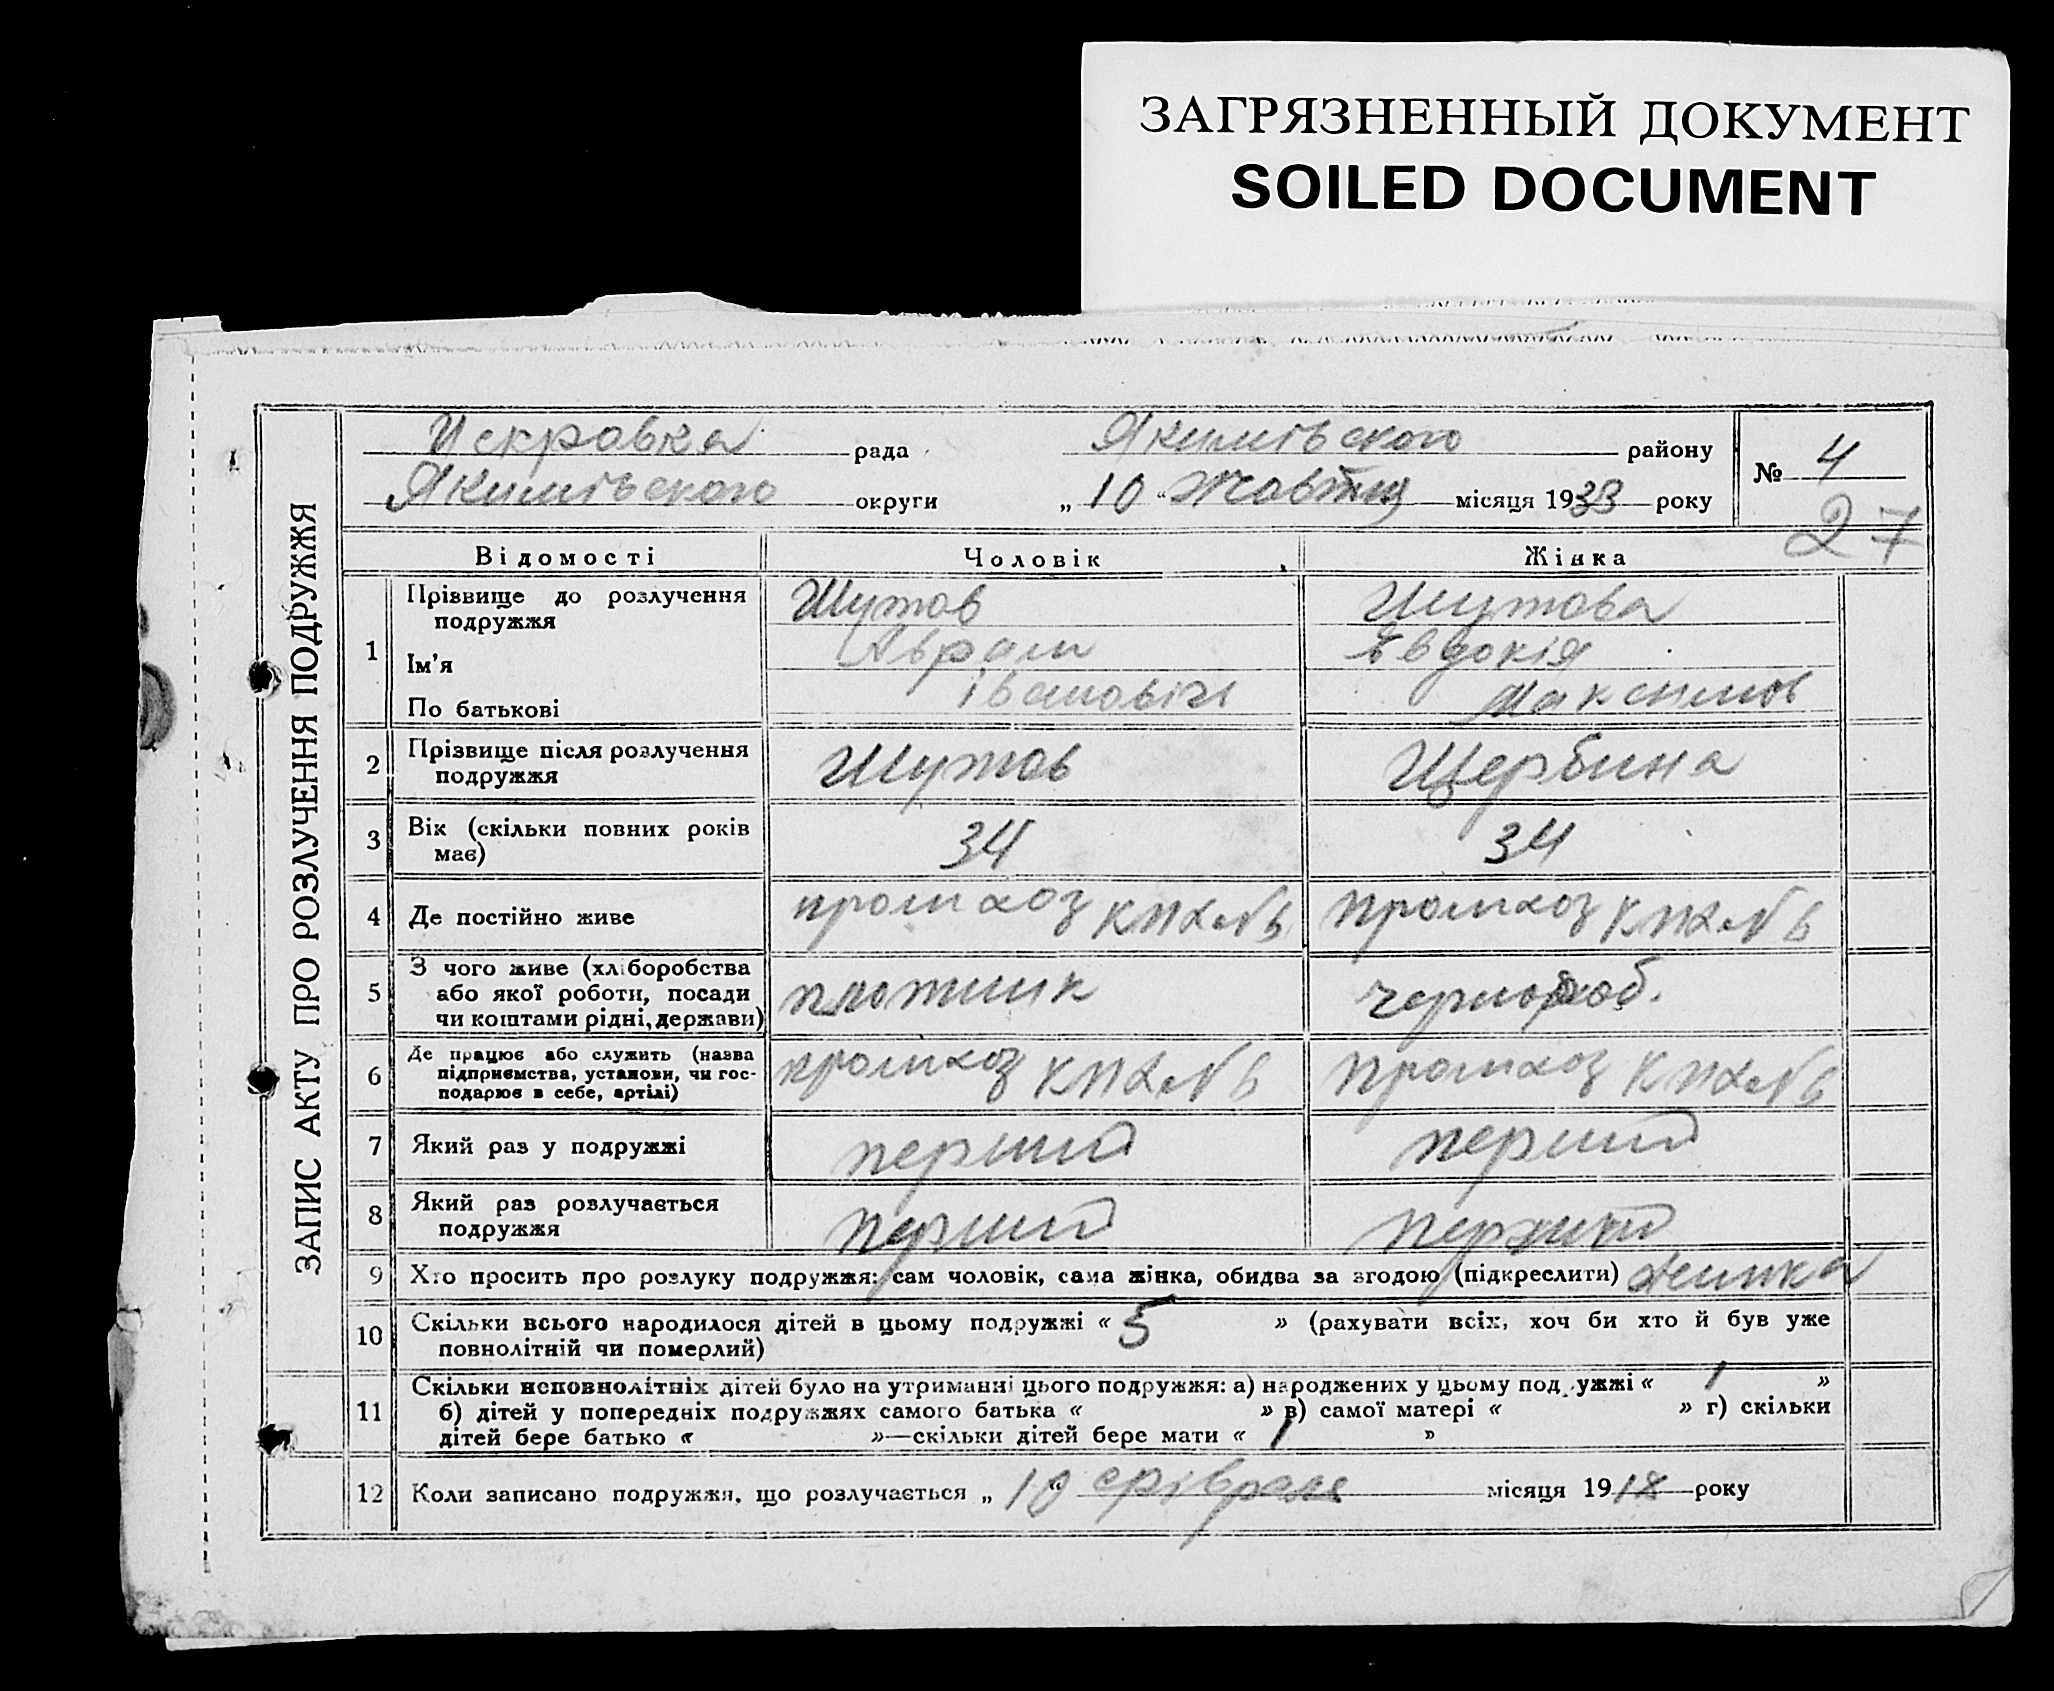 ЗАГРЯЗНЕННЫЙ ДОКУМЕНТ
SOILED DOCUMENT
ЗАПИС АКТУ ПРО РОЗЛУЧЕННЯ ПОДРУЖЖЯ
Искровка рада Якимівського району
Якимівського округи „ 10 “ Жовтня місяця 1933 року
№ 4
27
Відомості Чоловік Жінка
1 Прізвище до розлучення подружжя Шутов Шутова
Ім'я Аврам Евдокія
По батькові івановіч Максимов
2 Прізвище після розлучення подружжя Шутов Щербина
3 Вік (скільки повних років має) 34 34
4 Де постійно живе промхоз КПХ№6 промхоз КПХ№6
5 З чого живе (хліборобства або якої роботи, посади чи коштами рідні, держави) плотник чернороб.
6 Де працює або служить (назва підприємства, установи, чи господарює в себе, артілі) промхоз КПХ№6 промхоз КПХ№6
7 Який раз у подружжі перший перший
8 Який раз розлучається подружжя перший перший
9 Хто просить про розлуку подружжя: сам чоловік, сама жінка, обидва за згодою (підкреслити)
10 Скільки всього народилося дітей в цьому подружжі « 5 » (рахувати всіх, хоч би хто й був уже
повнолітній чи померлий)
11 Скільки неповнолітніх дітей було на утриманні цього подружжя: а) народжених у цьому подружжі « 1 »
б) дітей у попередніх подружжях самого батька « » в) самої матері « » г) скільки
дітей бере батько « »—скільки дітей бере мати « 1 »
12 Коли записано подружжя, що розлучається „ 10 февраля місяця 1918 року